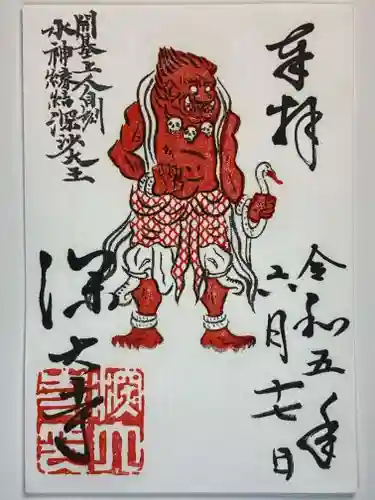 奉拝
令和五年
六月十七日
開基上人自刻
水神縁結深沙大王
深大寺